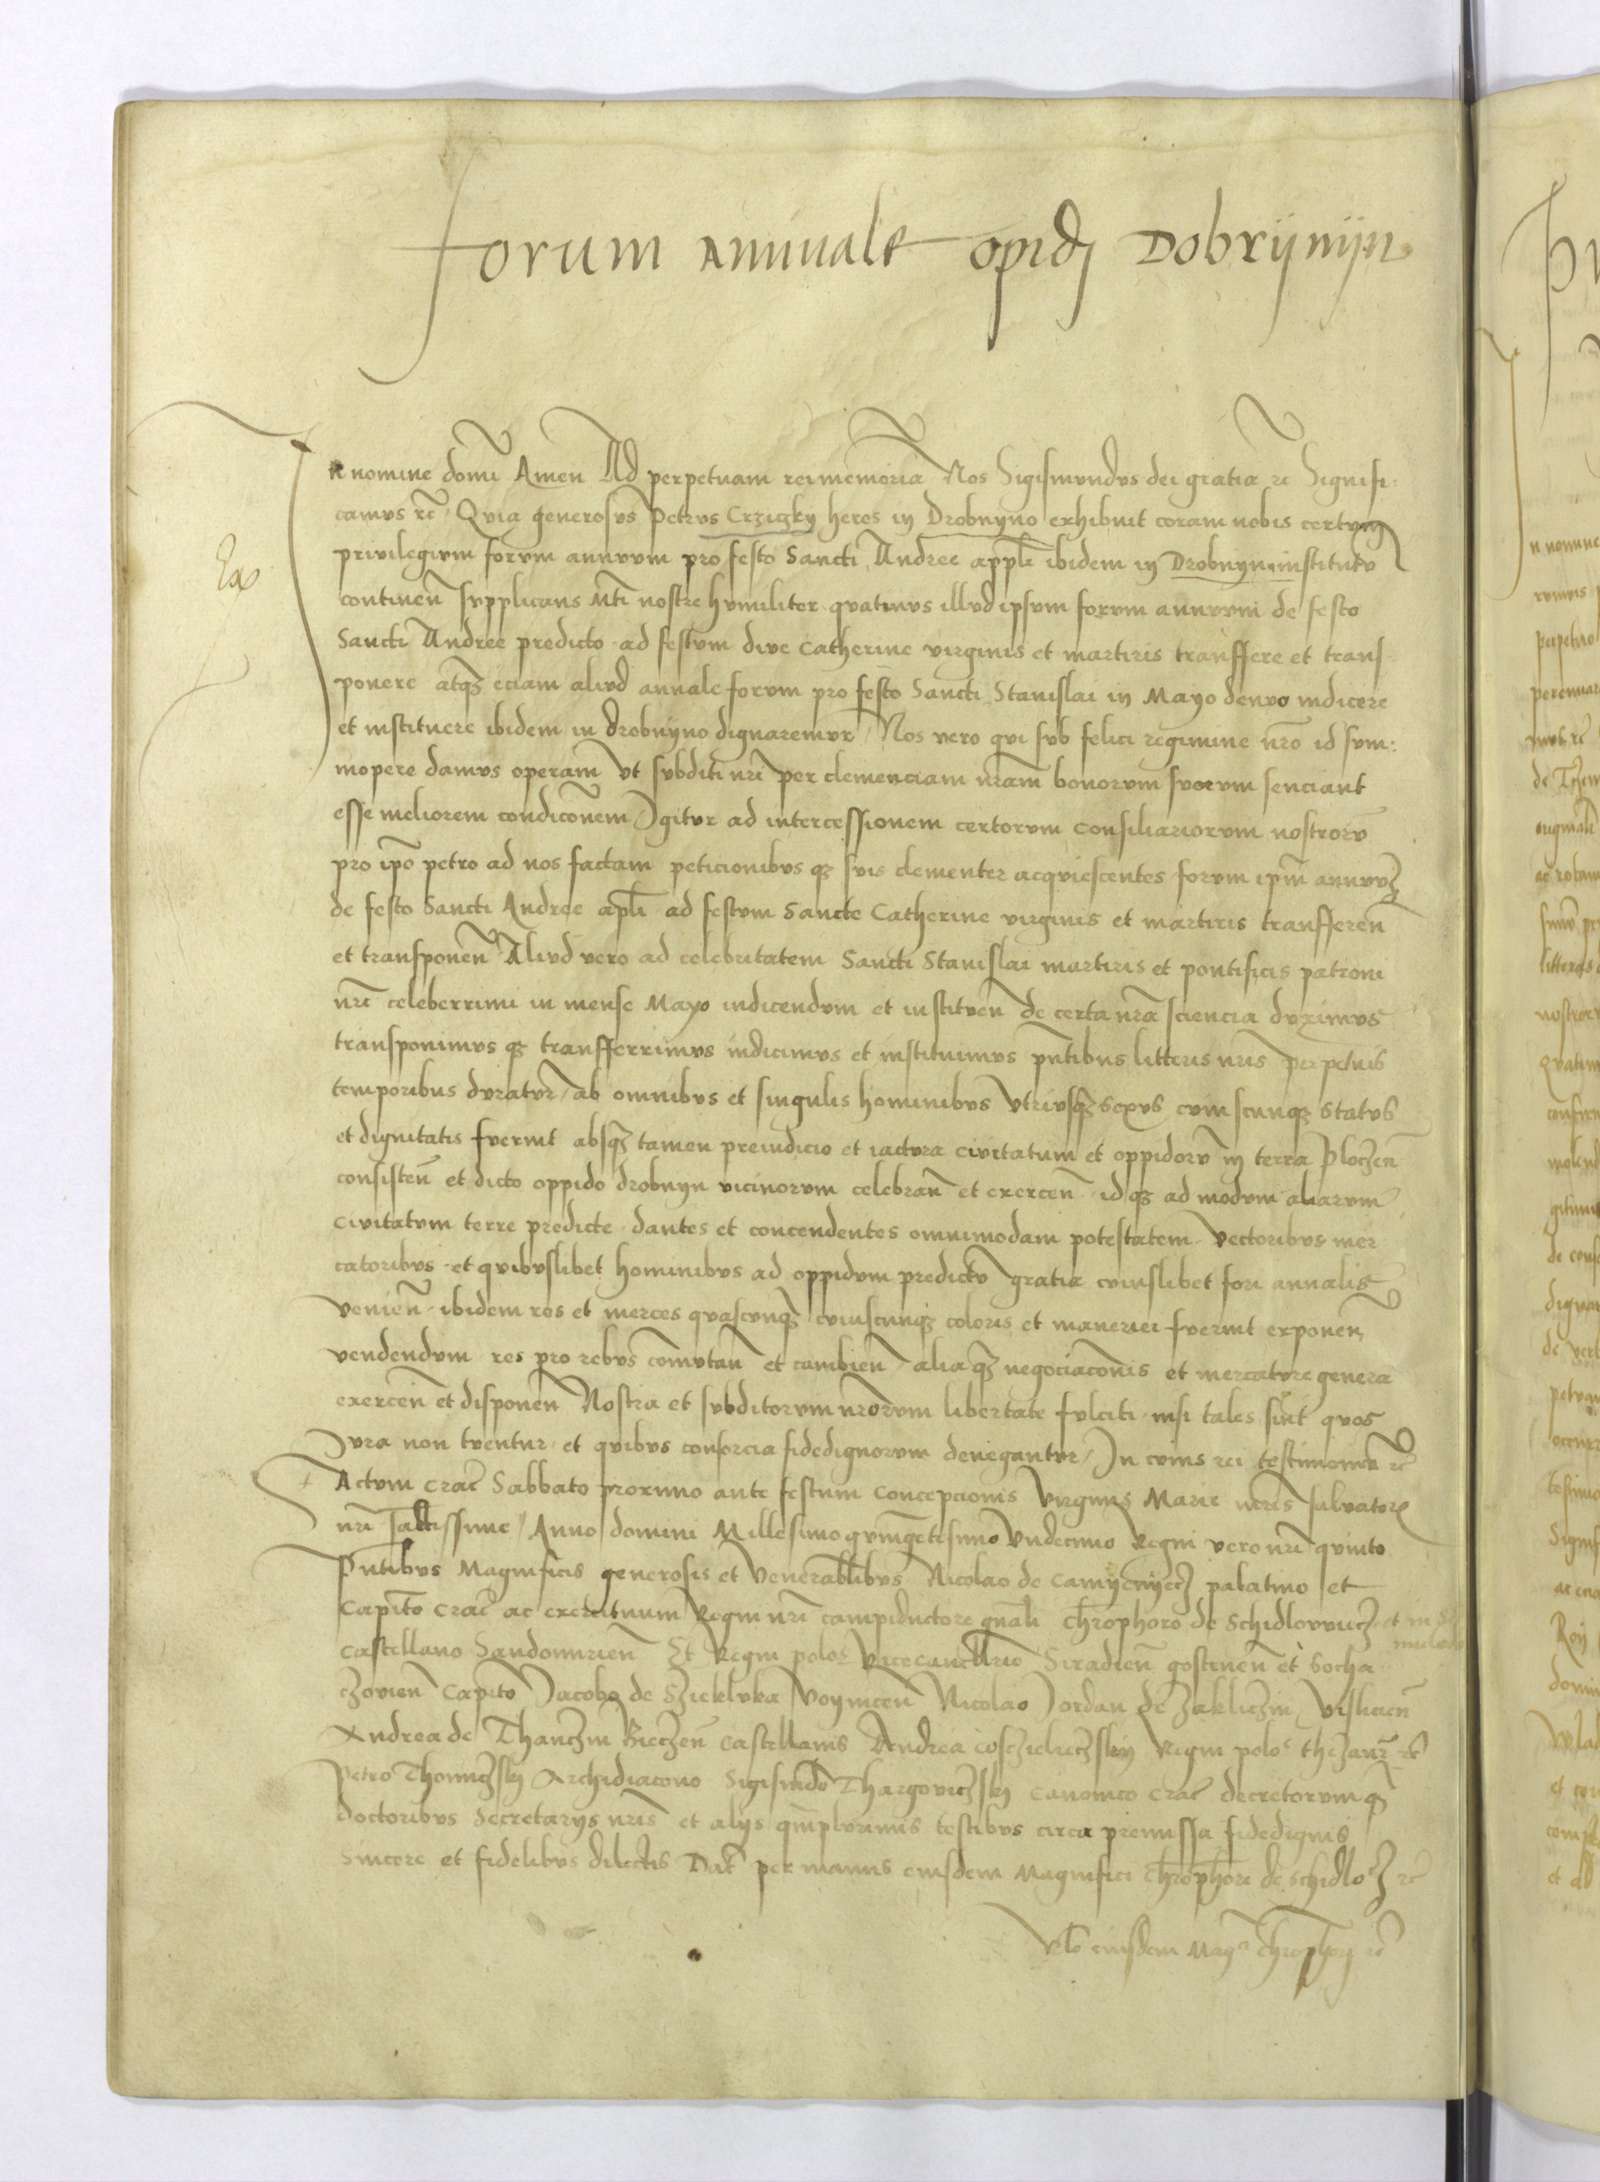 Forum Annuale opidj Dobrijnijn
Ex
In nomine domi Amen Ad perpetuam rei memoria Nos Sigismvndvs dei gratia rc Signifi:
camvs rc Qvia generosvs Petrvs Crziczky heres in Drobnyno exhibuit coram nobis certvm
privilegivm forvm annvvm pro festo Sancti Andree appli ibidem in Drobnyn institutv
continen svpplicans Mti nostre hvmiliter qvatinvs illvd ipsvm forvm annvvm de festo
Sancti Andree predicto ad festvm dive Catherine virginis et martiris transffere et trans
ponere atqz eciam alivd annale forvm pro festo Sancti Stanislai in Mayo denvo indicere
et institvere ibidem in drobnyno dignaremvr Nos vero qvi svb felici regimine nro id svm:
mopere damvs operam vt svbditi nri per clemenciam nram bonorvm svorvm senciant
esse meliorem condiconem Igitvr ad intercessionem certorvm consiliariorvm nostrorv
pro ipo petro ad nos factam peticionibvs qz svis clementer acqviescentes forvm ipm annvvz
de festo Sancti Andree apli ad festvm Sancte Catherine virginis et martiris transfferen
et transponen Alivd vero ad celebritatem Sancti Stanislai martiris et pontificis patroni
nri celeberrimi in mense Mayo indicendvm et institven de certa nra sciencia dvximvs
transponimvs qz transfferrimvs indicimvs et instituimvs pntibus litteris nris perpetuis
temporibus dvratvr ab omnibvs et singulis hominibvs vtrivsqz sexvs cvivscunqz statvs
et dignitatis fverint absqz tamen preiudicio et iactvra civitatum et oppidorv in terra Ploczen
consisten et dicto oppido drobnyn vicinorvm celebran et exercen id qz ad modvm aliarvm
civitatvm terre predicte dantes et concendentes omnimodam potestatem vectoribvs mer
catoribvs et qvibvslibet hominibvs ad oppidvm predictv gratia cviuslibet fori annalis
venien ibidem res et merces qvascvnqz cviuscunqz coloris et maneriei fverint exponen
vendendvm res pro rebvs comvtan et cambien alia qz negociaconis et mercatvre genera
exercen et disponen Nostra et svbditorvm nrorvm libertate fvlciti nisi tales sint qvos
Jvra non tventur et qvibvs consorcia fidedignorvm denegantvr In cvius rei testimoniu rc
Actvm crac Sabbato proximo ante festum Concepcionis Virginis Marie
nri Anno domini Millesimo qvingetesimo vndecimo Regni vero nri qvinto
Pntibvs Magnificis generosis et Venerablibvs Nicolao de Camyenyecz palatino et
Capito crac ac exercituum Regni nri campiductore gnali Chrophoro de Schidlovvicz et in
Castellano Sandomirien Et Regni polo vicecancllrio Siradien gostinen et Socha
czovien Capito Jacobo de Szieklvka Voynicen Nicolao Jordan de Zakliczin Vislicien
Andrea de Thanczin Bieczen Castellanis Andrea Coszieleczskij Regni polo thezaur rc
Petro Thomiczskij Archidiacono Sigismdo Thargoviczskij Canonico crac decretorvm qz
doctoribvs Secretarys nris et alijs qmplvrimis testibvs circa premissa fidedignis
Sincere et fidelibvs dilectis Dat per manvs eiusdem Magnifici Chrophori de Schidlo rc
eiusdem Mag Chrophorj rc